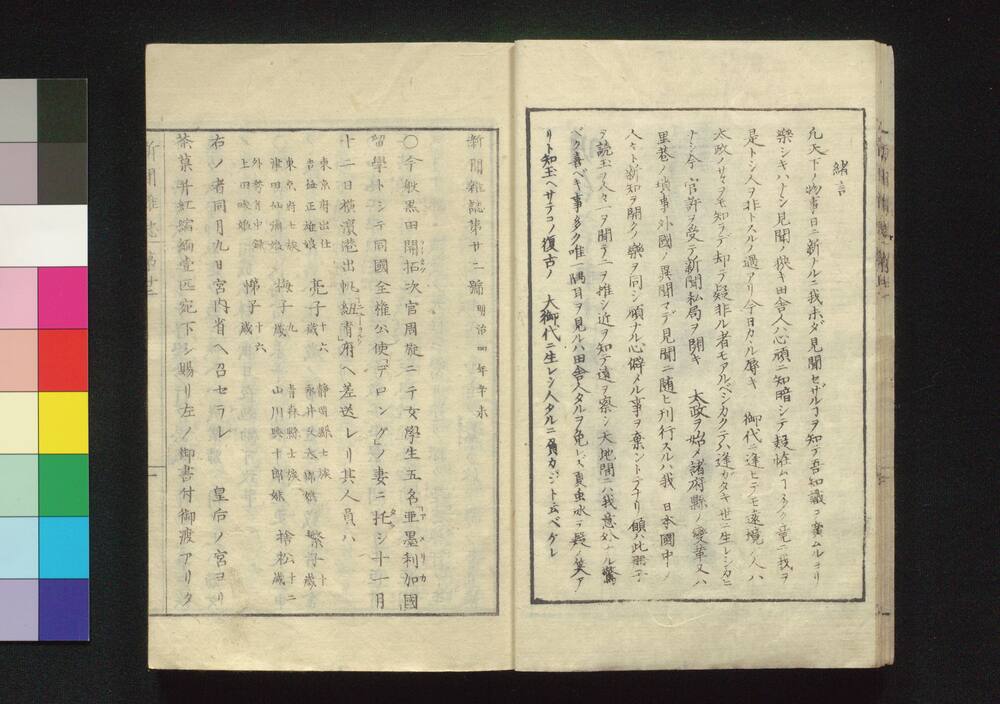 緒言
凡天下ノ物事日ニ新タナルニ我未ダ見聞セザルヿヲ知テ吾知識ヲ廣ムルヨリ
樂シキハナシ見聞ノ狹キ田舎人ハ心頑ニ知暗シテ疑怪ムヿ多ク竟ニ我ヲ
是トシ人ヲ非トスルノ過アリ今日カヽル辱キ 御代ニ逢ヒテモ遠境ノ人ハ
太政ノサマヲモ知ラデ却テ疑非ル者モアルベシカクテハ逢ガタキ世ニ生レシカヒ
ナシ今 官許ヲ受テ新聞私局ヲ開キ 太政ヲ始メ諸府縣ノ變革又ハ
里巷ノ瑣事外國ノ異聞マデ見聞ニ隨ヒ刊行スルハ我 日本國中ノ
人々ト新知ヲ開クノ樂ヲ同シ頑ナル心僻メル事ヲ棄ントテナリ傾ハ此冊子
ヲ讀玉ヲ人々一ヲ聞テ二ヲ推シ近ヲ知テ遠ヲ察シ天地間ニハ我意外ナル驚
ベク喜ベキ事多ク唯一隅耳ヲ見ルハ田舎人タルヲ免レズ夏虫氷ヲ疑ノ笑ア
リト知玉ヘサテコソ復古ノ 大御代ニ生レシ人タルニ負カジト云ベケレ
新聞雜誌第廿二號 明治四年辛未
〇今般黒田開拓次官周旋ニテ女學生五名亜墨利加國
留學トシテ同國全權公使「デロング」ノ妻ニ托シ十一月
十二日横濵港出帆紐育府ヘ差送レリ其人員ハ
東京府出仕 吉益正雄娘 亮子 十六歳 静岡縣士族 永井久太郎娘 繁子 十歳
東京府士族 津田仙彌娘 梅子 九歳 青森縣士族 山川與十郎妹 捨松 十二歳
外務省中録 上田畯娘 悌子 十六歳
右ノ者同月九日宮内省ヘ召セラレ 皇后ノ宮ヨリ
茶菓并紅縮緬壹匹宛下シ賜リ左ノ御書付御渡アリタ